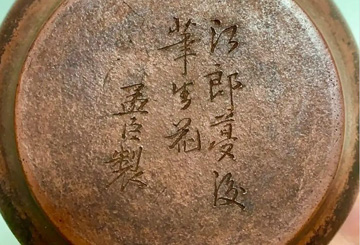 江郎夢後
筆生花
孟臣製